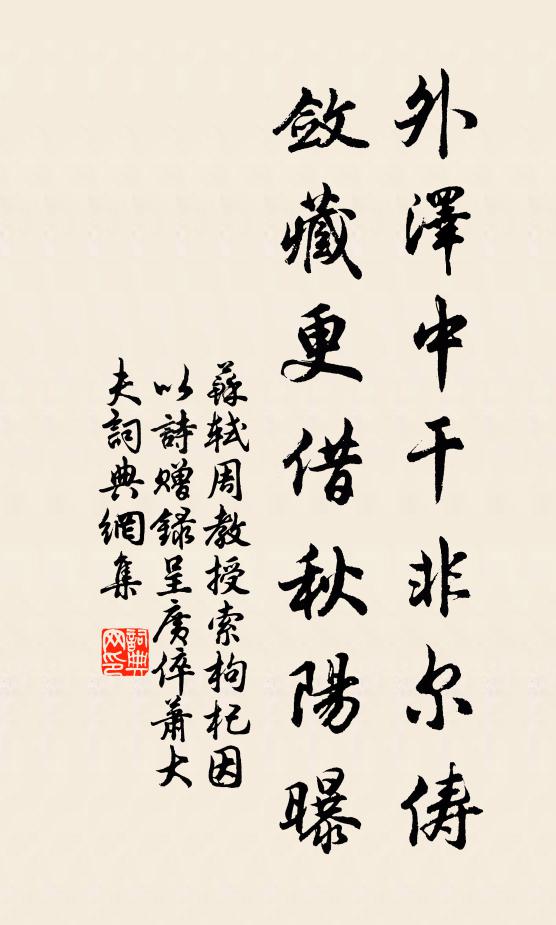 外澤中干非尔俦
斂藏更借秋陽曝
蘇轼周教授索枸杞因
以詩赠録呈廣倅蕭大
夫詞典網集
詞典
网印